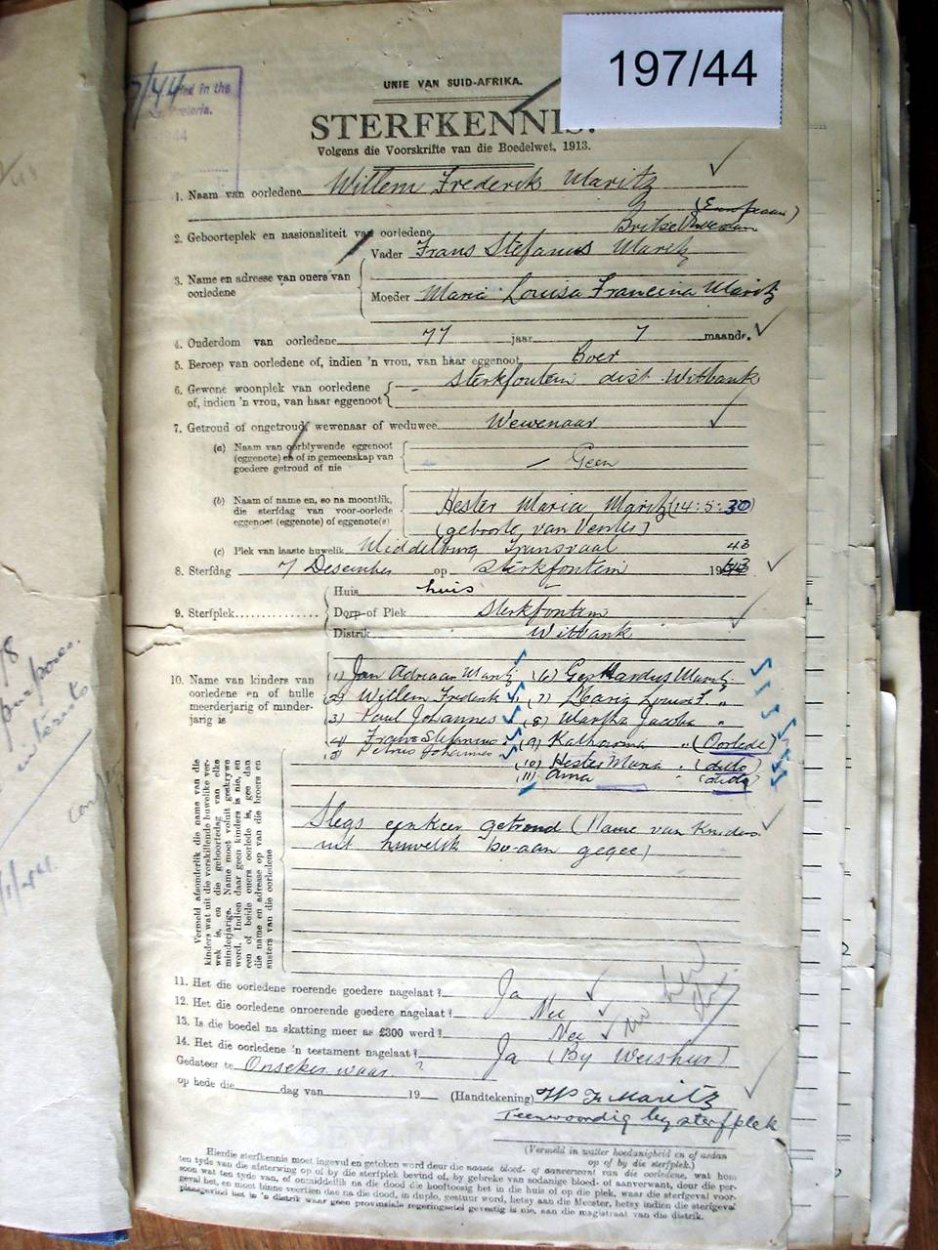 197/44
UNIE VAN SUID-AFRIKA.
STERFKENNIS.
Volgens die Voorskrifte van die Boedelwet, 1913.
1. Naam van oorledene Willem Frederik Maritz
2. Geboorteplek en nasionaliteit van oorledene
3. Name en adresse van ouers van oorledene
Vader Frans Stefanus Maritz
Moeder Maria Louisa Francina Maritz
4. Ouderdom van oorledene 77 jaar 7 maande.
5. Beroep van oorledene of, indien 'n vrou, van haar eggenoot Boer
6. Gewone woonplek van oorledene of, indien 'n vrou, van haar eggenoot
Sterkfontein dist. Witbank
7. Getroud of ongetroud, wewenaar of weduwee. Wewenaar
(a) Naam van oorblywende eggenoot
(eggenote) en of in gemeenskap van
goedere getroud of nie
Geen
(b) Naam of name en, so na moontlik,
die sterfdag van voor-oorlede
eggenoot (eggenote) of eggenote(s)
Hester Maria Maritz (14:5:30)
(geboorte van Venter)
(c) Plek van laaste huwelik Middelburg Transvaal
43
8. Sterfdag 7 Desember op Sterkfontein 19
9. Sterfplek
Huis huis
Dorp of Plek Sterkfontein
Distrik Witbank
10. Name van kinders van
oorledene en of hulle
meerderjarig of minder-
jarig is
(1) Jan Adriaan Maritz (6) Gerhardus Maritz
(2) Willem Frederik (7) Maria Louisa F. "
(3) Paul Johannes (8) Martha Jacoba "
(4) Frans Stefanus (9) Katharina " (Oorlede)
5) Petrus Johannes (10) Hester Maria " (dito)
(11) Anna " (dito)
Vermeld afsonderlik die name van die
kinders wat uit die verskillende huwelike ver-
wek is, en die geboortedag van elke
minderjarige. Name moet voluit geskrywe
word. Indien daar geen kinders is nie, en
een of beide ouers oorlede is, gee dan
die name en adresse op van die broers en
susters van die oorledene
Slegs eenkeer getroud (Name van Kinders
uit huwelik bo-aan gegee)
11. Het die oorledene roerende goedere nagelaat? Ja
12. Het die oorledene onroerende goedere nagelaat? Nee
13. Is die boedel na skatting meer as £300 werd? Nee
14. Het die oorledene 'n testament nagelaat? Ja (By Weishur)
Gedateer te Onseker waar ?
op hede die dag van 19 (Handtekening) W Fr Maritz
Teenwoordig by sterfplek
(Vermeld in watter hoedanigheid en of aedan
op of by die sterfplek.)
Hierdie sterfkennis moet ingevul en geteken word deur die naaste bloed- of aanverwant van die oorledene, wat hom
ten tyde van die afsterwing op of by die sterfplek bevind of, by gebreke van sodanige bloed- of aanverwant, deur die per-
soon wat ten tyde van, of onmiddellik na die dood die hooftoesig het in die huis of op die plek, waar die sterfgeval voor-
geval het, en moet binne veertien dae na die dood, in duplo, gestuur word, hetsy aan die Meester, hetsy indien die sterfgeval
plaasgevind het in 'n distrik waar geen provinsiale regeringsetel gevestig is nie, aan die magistraat van die distrik.